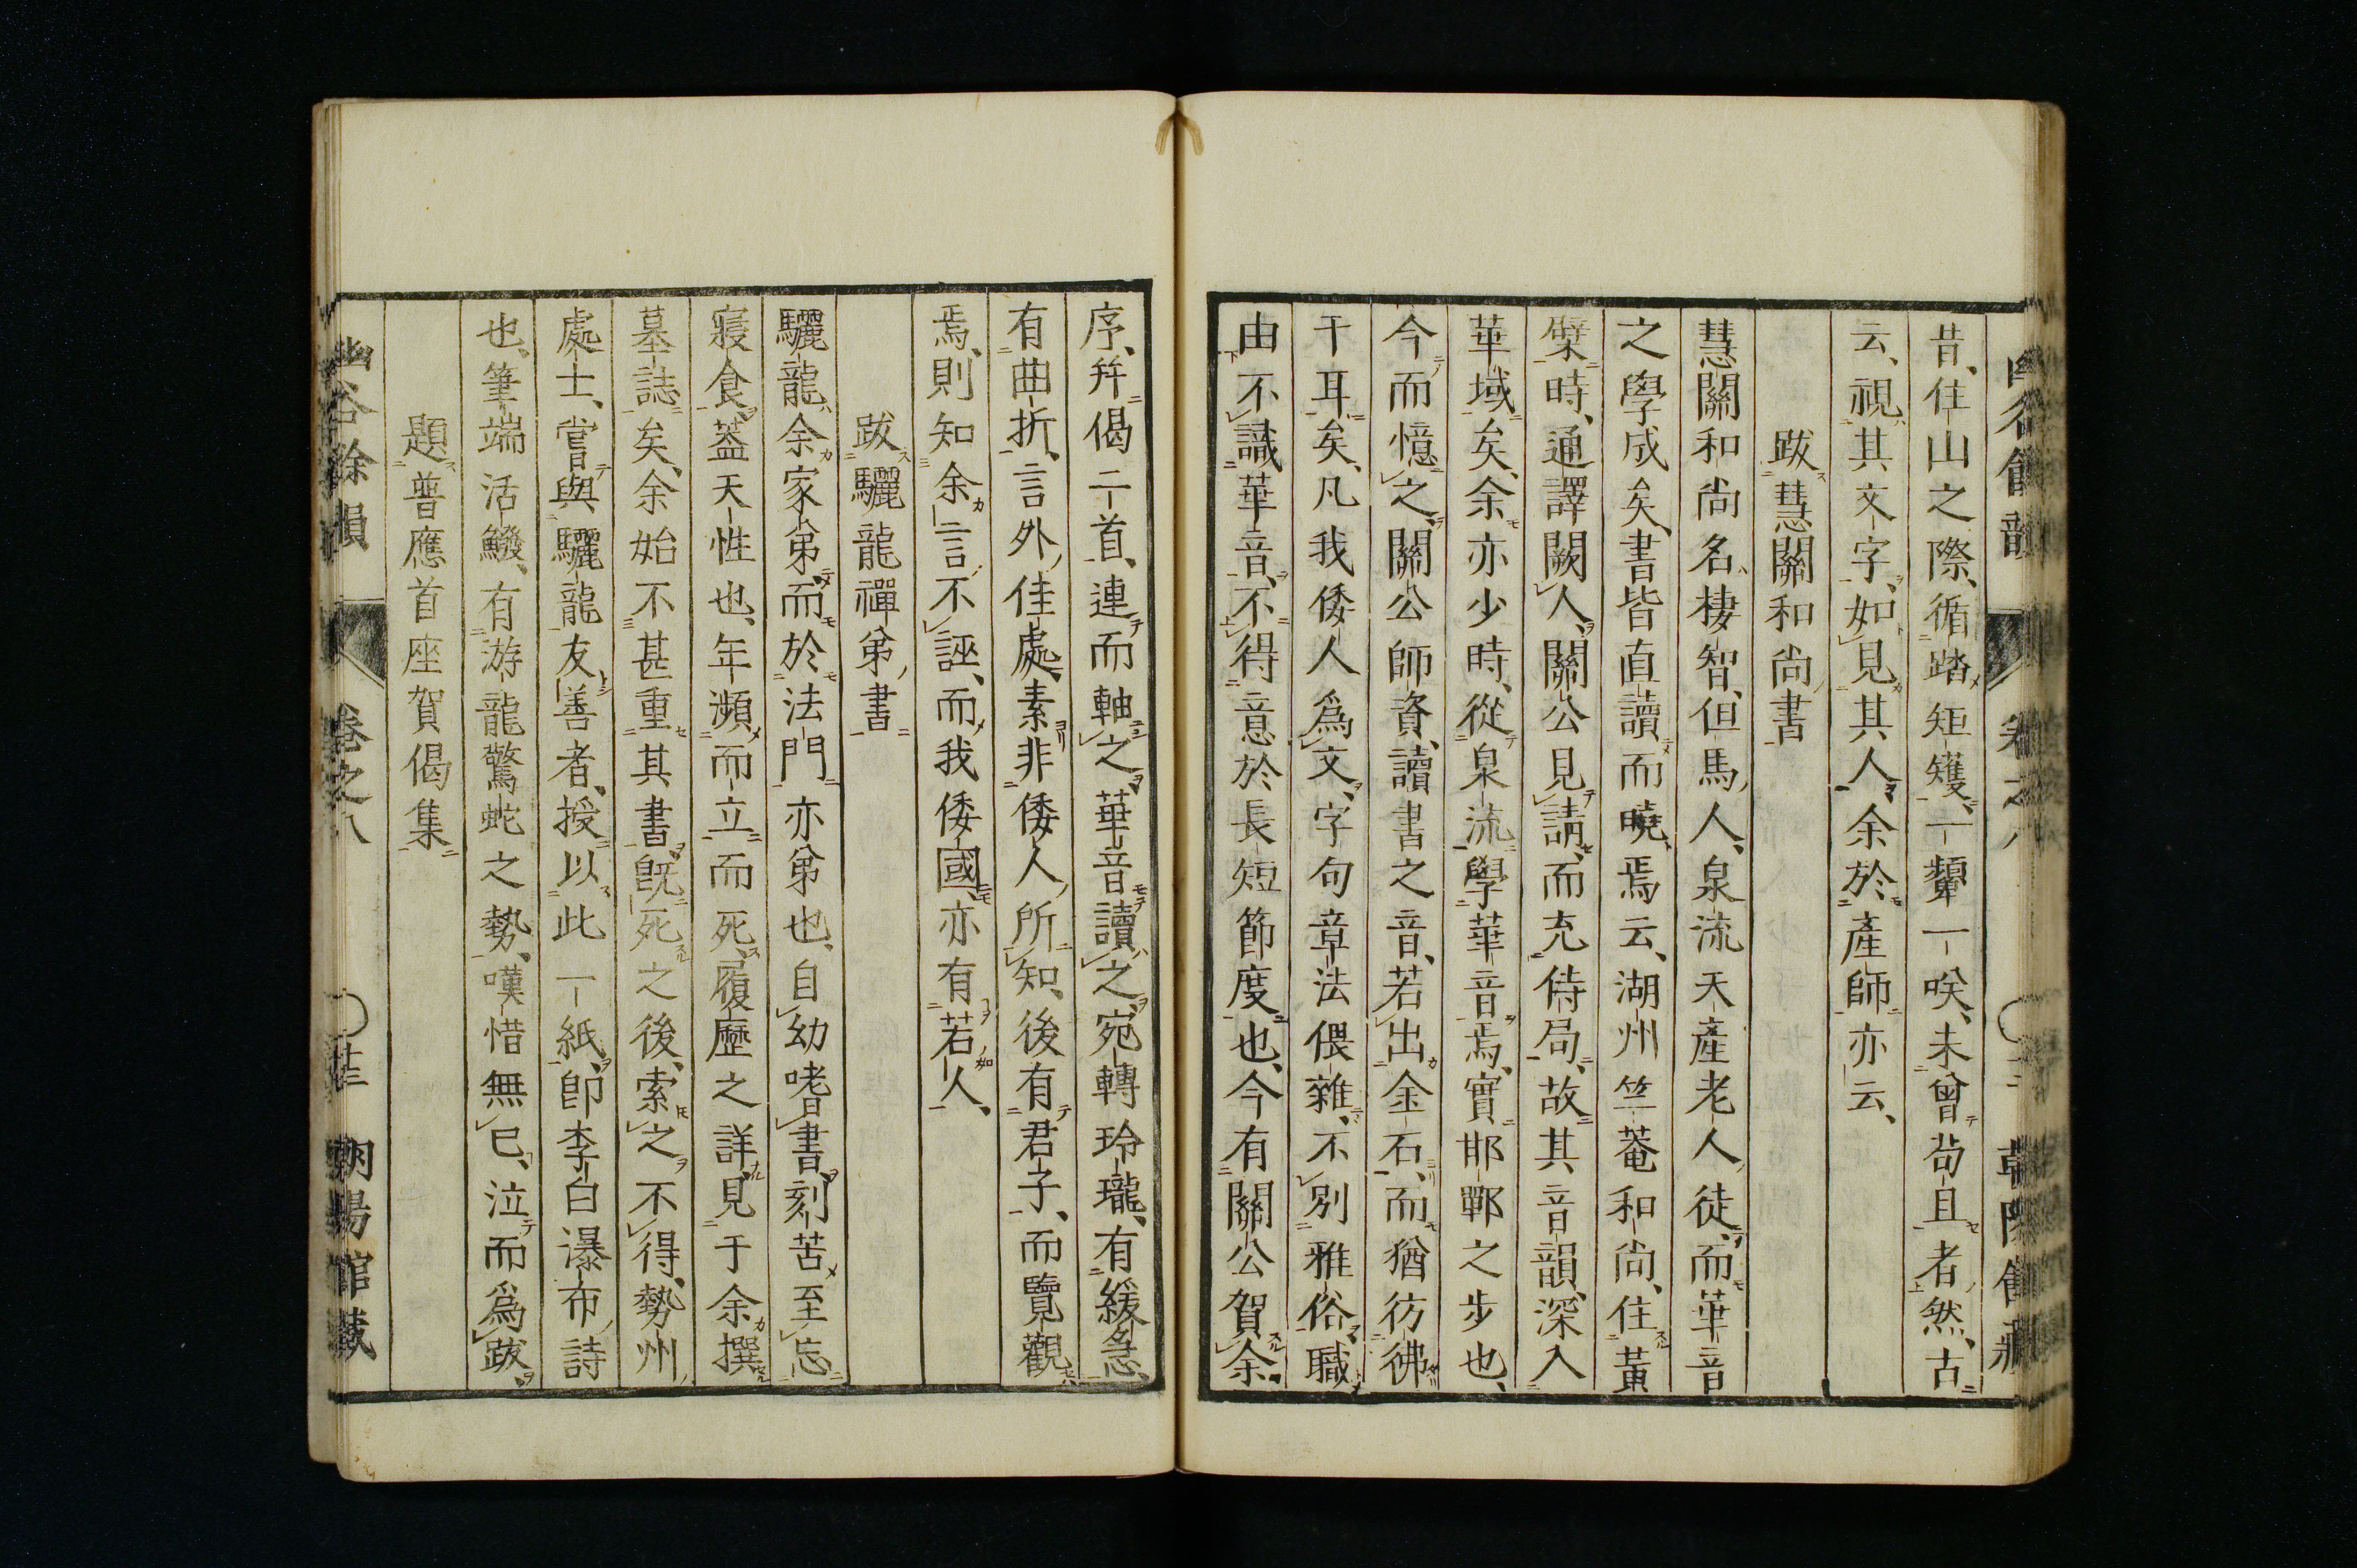 昔、住山之際、循踏矩矱、一顰一咲、未曾苟且者、然、古
云、視其文字、如見其人、余於產師亦云、
跋慧關和尚書
慧關和尚名棲智、但馬人、泉流天產老人徒、而華音
之學成矣、書皆直讀而曉焉云、湖州竺菴和尚、住黃
檗時、通譯闕人、關公見請、而充侍局、故其音韻、深入
華域矣、余亦少時、從泉流學華音焉、實邯鄲之步也、
今而憶之、關公師資、讀書之音、若出金石、而猶彷彿
干耳矣、凡我倭人爲文、字句章法偎雜、不別雅俗、職
由不識華音、不得意於長短節度也、今有關公賀余
序、幷偈二首、連而軸之、華音讀之、宛轉玲瓏、有緩急、
有曲折、言外佳處、素非倭人所知、後有君子、而覽觀
焉、則知余言不誣、而我倭國亦有若人、
跋驪龍禪弟書
驪龍余家弟、而於法門亦弟也、自幼嗜書、刻苦至忘
寢食、蓋天性也、年瀕而立而死、履歷之詳、見于余撰
墓誌矣、余始不甚重其書、既死之後、索之不得、勢州
處士、嘗與驪龍友善者、授以此一紙、卽李白瀑布詩
也、筆端活鱍、有游龍驚蛇之勢、嘆惜無已、泣而爲跋、
題普應首座賀偈集
幽谷餘韻 卷之八 〇廿三 朝陽館藏